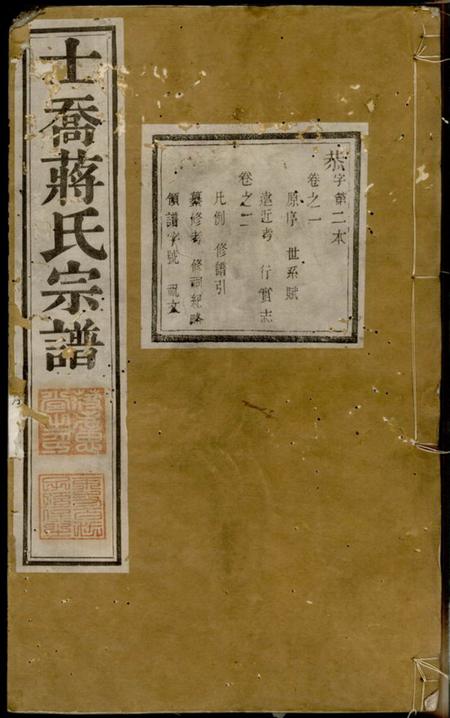 士喬蔣氏宗譜
恭字第二本
卷之一
原序 世系賦
遠近考 行實志
卷之二
凡例 修譜引
纂修考 修祠紀略
領譜字號 祝文